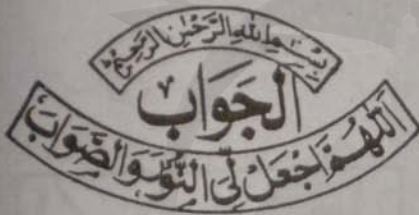 بِسْمِ اللّٰهِ الرَّحْمٰنِ الرَّحِيْمِ
اَلْجَوَابُ
اَللّٰهُمَّ اجْعَلْ لِّي النُّوْرَ وَالصَّوَابَ